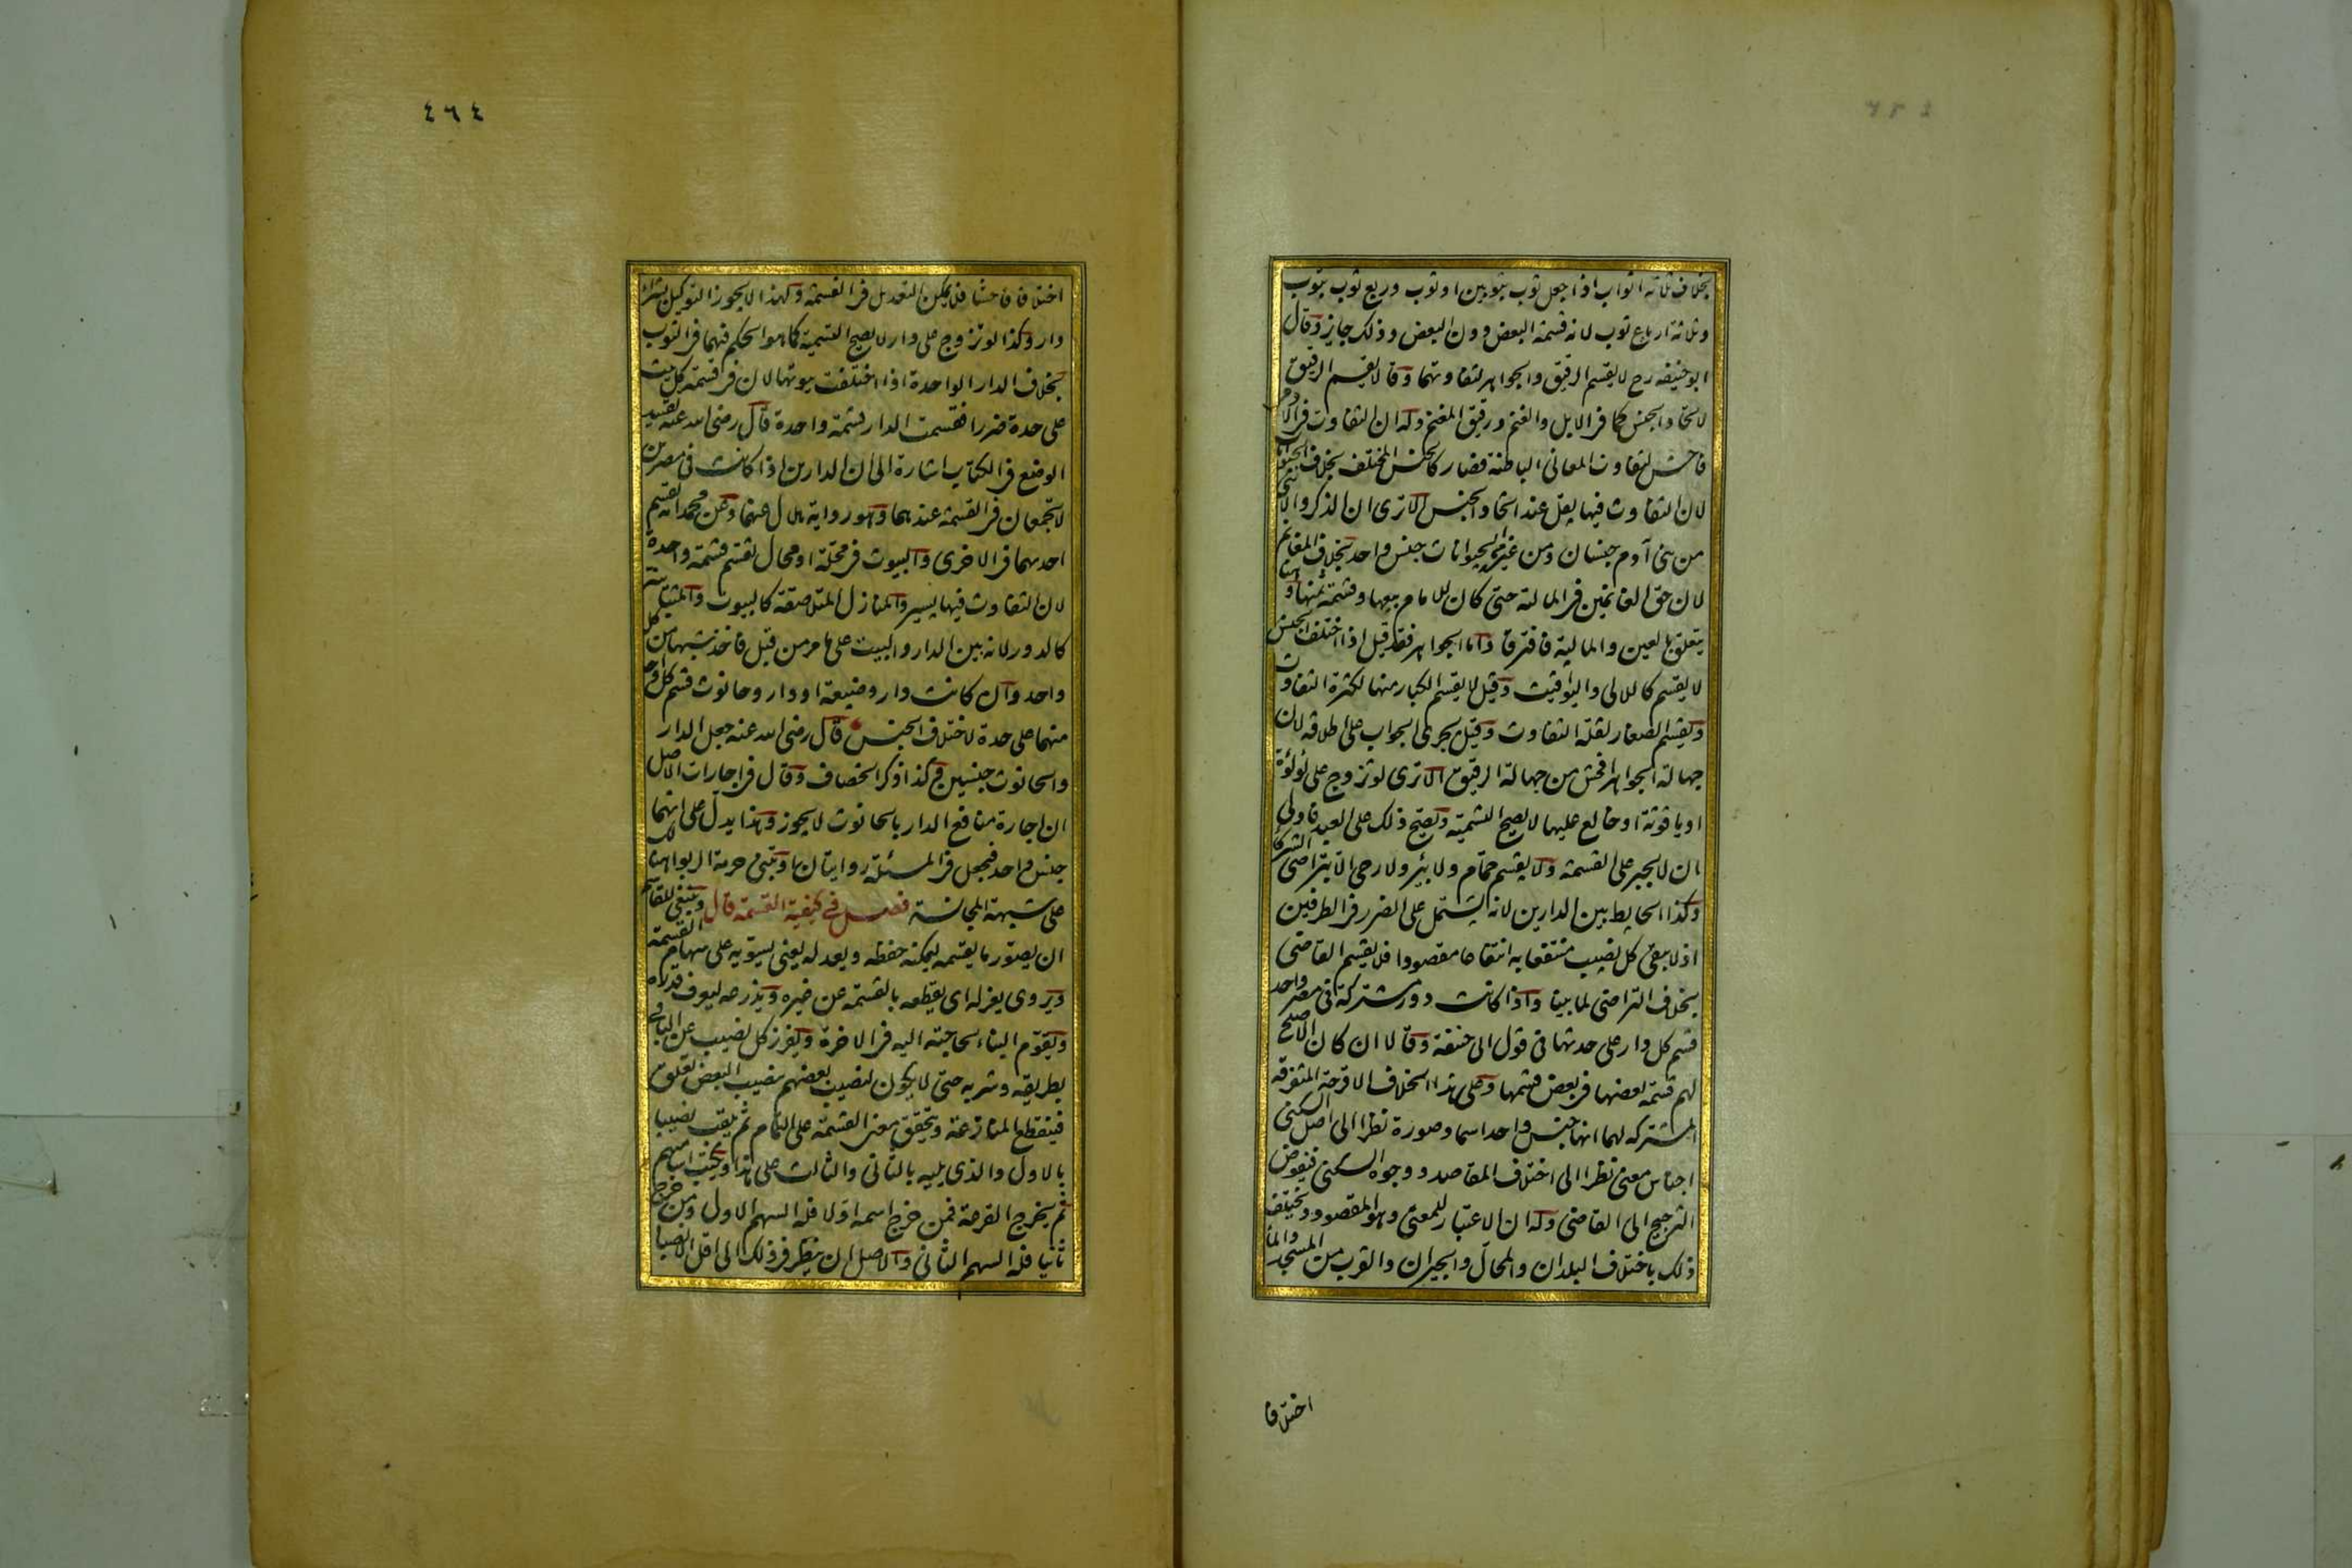 بخلاف ثلاثة اثواب اذا جعل ثوب بثوبين او ثوب وربع ثوب بثوب
وثلاثة ارباع ثوب لانه قسمة البعض دون البعض وذلك جايز وقال
ابو حنيفه رح لا يقسم الرقيق والجواهر لتفاوتهما وقالا يقسم الرقيق
لاتحاد الجنس كما فى الابل والغنم ورقيق المغنم وله ان التفاوت فى الادمى
فاحش لتفاوت المعانى الباطنة فصار كالجنس المختلف بخلاف الحيوانات
لان التفاوت فيها يقل عند اتحاد الجنس الا ترى ان الذكر والانثى
من بنى آدم جنسان ومن غيره الحيوانات جنس واحد بخلاف المغانم
لان حق الغانمين فى المالية حتى كان للامام بيعها وقسمة ثمنها وهنا
يتعلق بالعين والمالية فافترقا واما الجواهر فقد قيل اذا اختلف الجنس
لا يقسم كاللالى واليواقيت وقيل لا يقسم الكبار منها لكثرة التفاوت
ويقسم الصغار لقلة التفاوت وقيل يجرى الجواب على اطلاقه لان
جهالة الجواهر افحش من جهالة الرقيق الا ترى لو تزوج على لؤلؤة
او ياقوتة او خالع عليها لا يصح التسمية ويصح ذلك على العبد فاولى
ان لا يجبر على القسمة ولا يقسم حمّام ولا بئر ولا رحى الا بتراضى الشركا
وكذا الحايط بين الدارين لانه يشتمل على الضرر فى الطرفين
اذ لا يبقى كل نصيب منتفعا به انتفاعا مقصودا فلا يقسم القاضى
بخلاف التراضى لما بينا واذا كانت دور مشتركة فى مصر واحد
قسم كل دار على حدتها فى قول ابى حنيفة وقالا ان كان الاصلح
لهم قسمة بعضها فى بعض قسمها وعلى هذا الخلاف الاقرحة المتفرقه
المشتركه لهما انها جنس واحد اسما وصورة نظرا الى اصل السكنى
اجناس معنى نظرا الى اختلاف المقاصد ووجوه السكنى فيفوض
الترجيح الى القاضى وله ان الاعتبار للمعنى وهو المقصود ويختلف
ذلك باختلاف البلدان والمحال والجيران والقرب من المسجد والما
اختلافا
٤٦٤
اختلافا فاحشا فلا يمكن التعديل فى القسمة ولهذا لا يجوز التوكيل بشراء
دار وكذا لو تزوج على دار لا يصح التسمية كما هو الحكم فيهما فى الثوب
بخلاف الدار الواحدة اذا اختلفت بيوتها لان فى قسمة كل بيت
على حدة ضررا فقسمت الدار قسمة واحدة قال رضى الله عنه تقييد
الوضع فى الكتاب اشارة الى ان الدارين اذا كانت فى مصرين
لا تجمعان فى القسمة عندهما وهو رواية هلال عنهما وعن محمد انه يقسم
احدهما فى الاخرى والبيوت فى محلة او محال تقسم قسمة واحدة
لان التفاوت فيها يسير والمنازل المتلاصقة كالبيوت والمتباينة
كالدور لانه بين الدار والبيت على ما مر من قبل فاخذ شبها من كل
واحد وان كانت دار وضيعة او دار وحانوت قسم كل واحد
منهما على حدة لاختلاف الجنس قال رضى الله عنه جعل الدار
والحانوت جنسين وكذا ذكر الخصاف وقال فى اجارات الاصل
ان اجارة منافع الدار بالحانوت لا يجوز وهذا يدل على انهما
جنس واحد فيجعل فى المسئلة روايتان او تبنى حرمة الربوا هنالك
على شبهة المجانسة فصل فى كيفية القسمة قال وينبغى للقاسم
ان يصوّر ما يقسمه ليمكنه حفظه ويعدله يعنى يسويه على سهام القسمة
ويروى يعزله اى يقطعه بالقسمة عن غيره ويذرعه ليعرف قدره
ويقوّم البناء لحاجته اليه فى الاخرة ويفرز كل نصيب عن الباقى
بطريقه وشربه حتى لا يكون لنصيب بعضهم بنصيب البعض تعلق
فينقطع المنازعة ويتحقق معنى القسمة على التمام ثم يلقب نصيبا
بالاول والذى يليه بالثانى والثالث على هذا ويكتب اساميهم
ثم يخرج القرعة فمن خرج اسمه اولا فله السهم الاول ومن خرج
ثانيا فله السهم الثانى والاصل ان ينظر فى ذلك الى اقل الانصبا